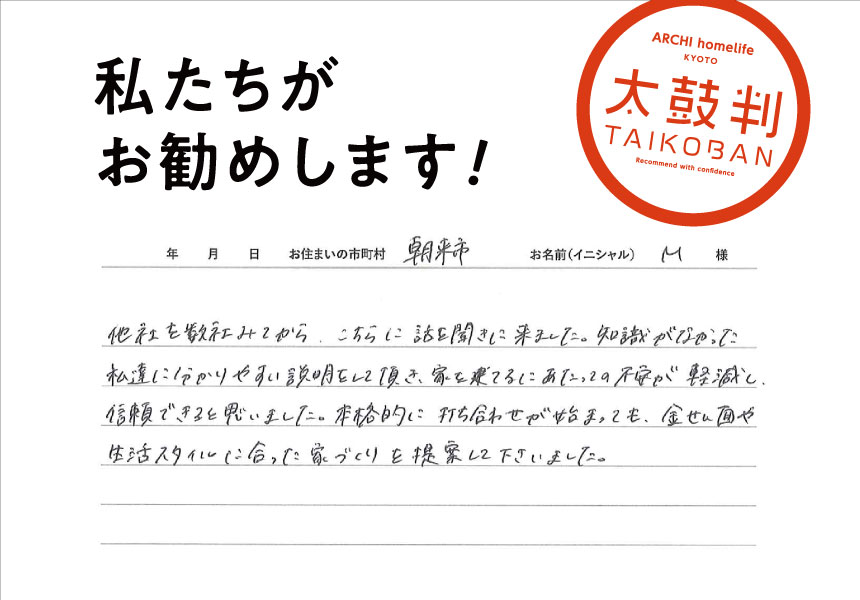 私たちが
お勧めします!
ARCHI homelife
KYOTO
太鼓判
TAIKOBAN
Recommend with confidence
年 月 日 お住まいの市町村 朝来市 お名前(イニシャル) M 様
他社を数社みてから、こちらに話を聞きに来ました。知識がなかった
私達に分かりやすい説明をして頂き、家を建てるにあたっての不安が軽減し、
信頼できると思いました。本格的に打ち合わせが始まっても、金せん面や
生活スタイルに合った家づくりを提案して下さいました。